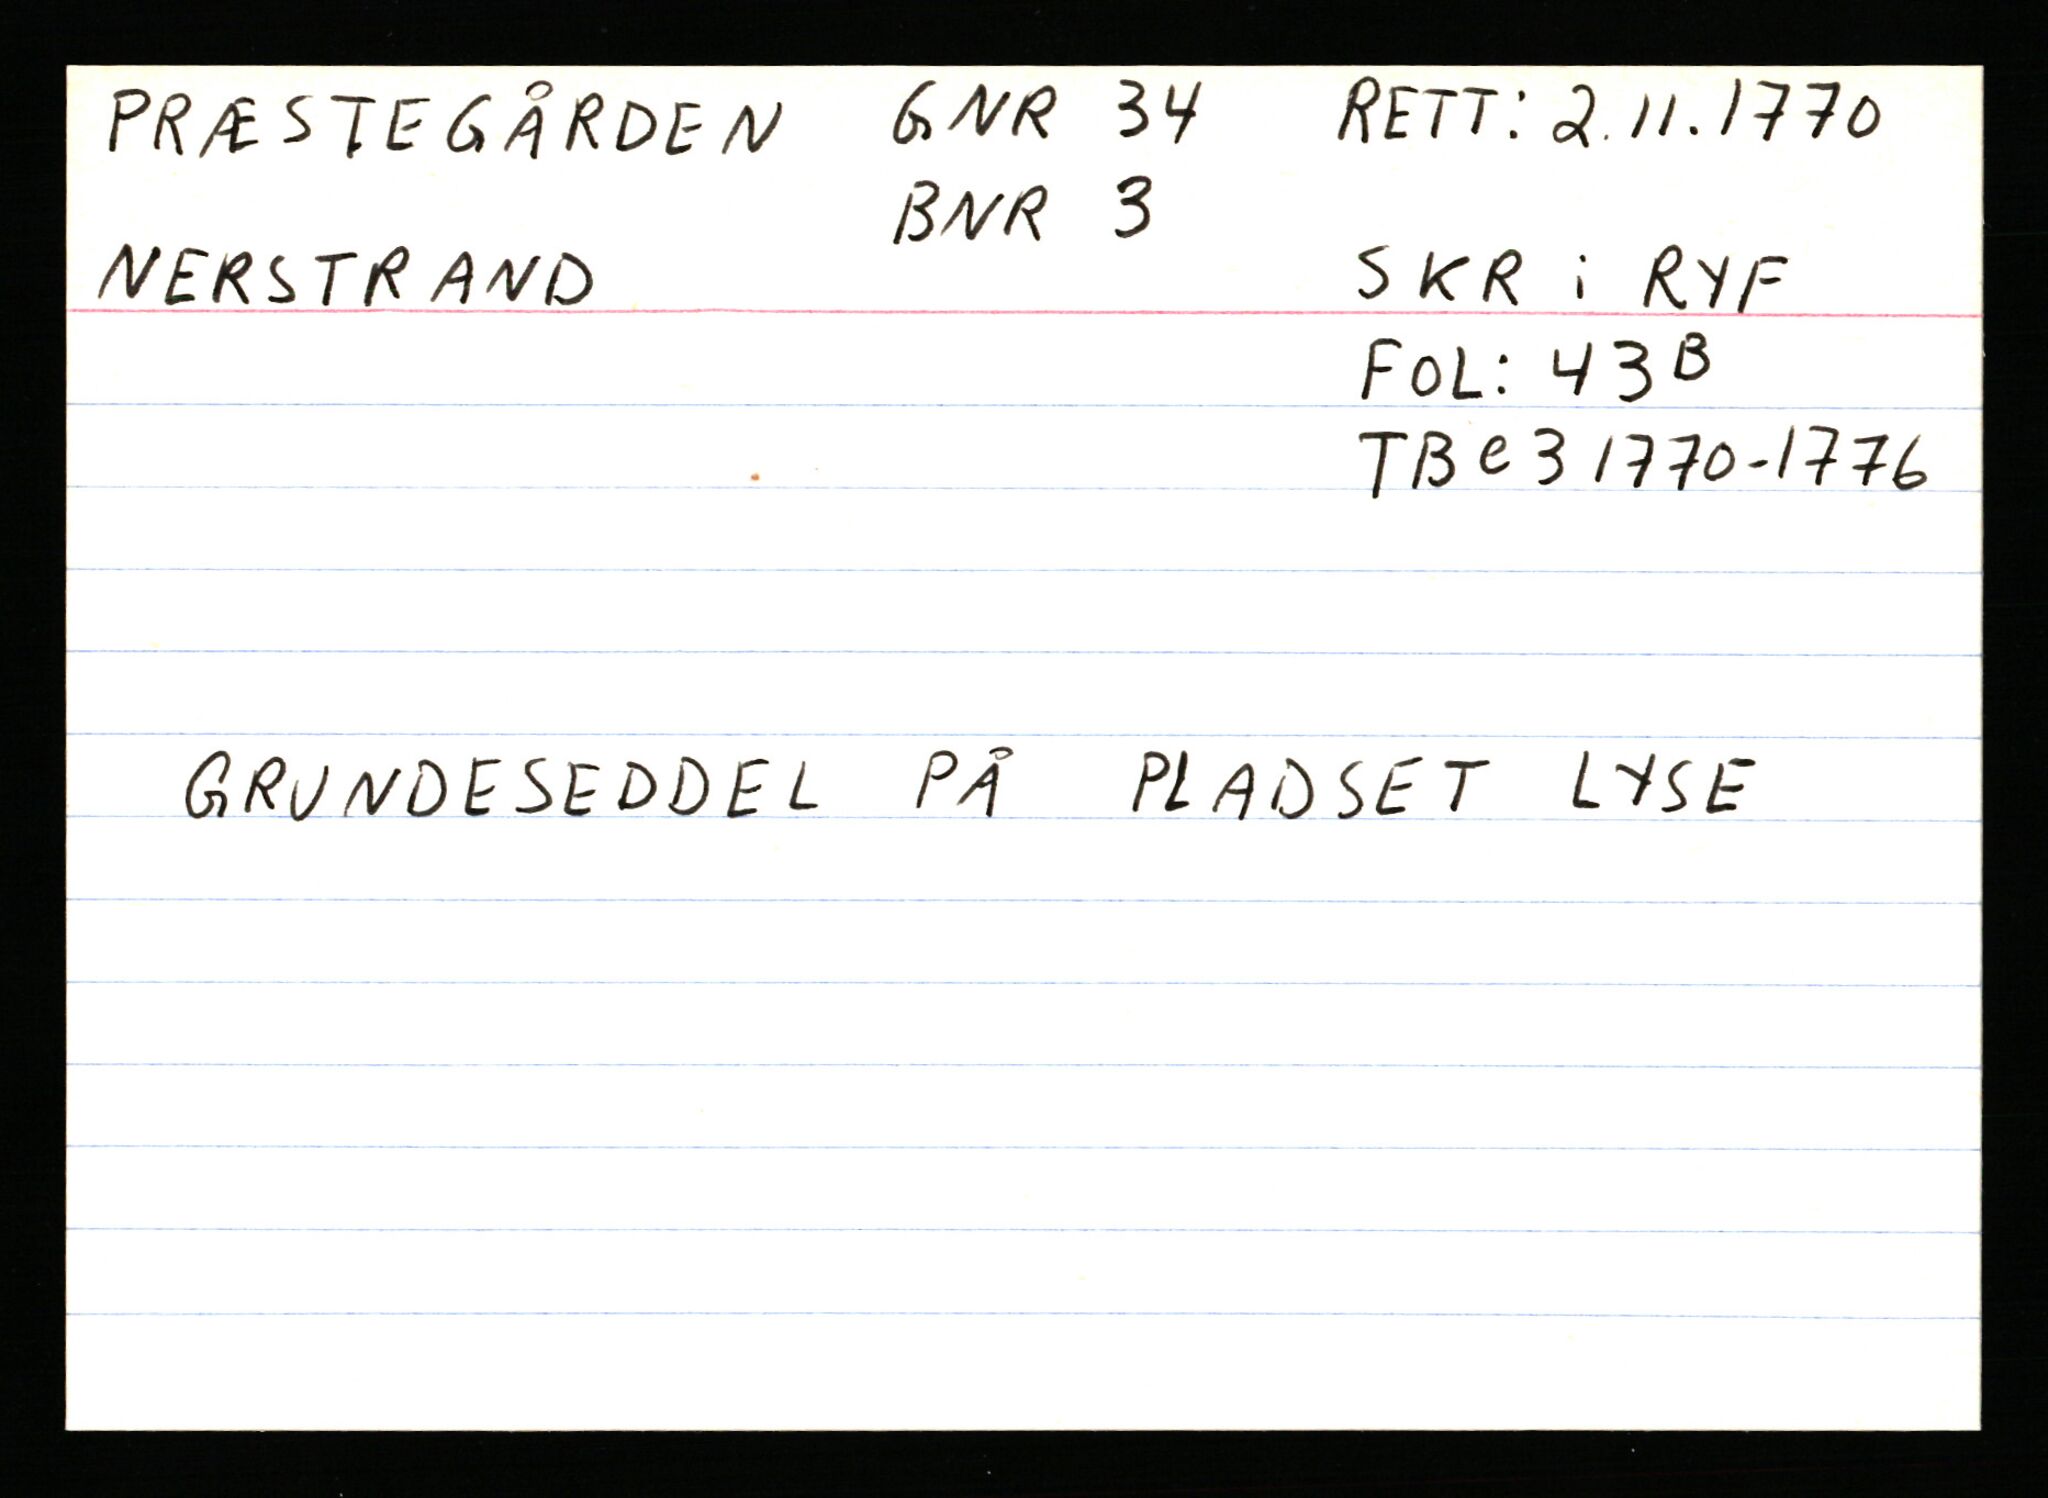 PRÆSTEGÅRDEN GNR 34 RETT: 2.11.1770
BNR 3
NERSTRAND SKR i RYF
FOL: 43B
TB e 3 1770-1776
GRUNDESEDDEL PÅ PLADSET LYSE